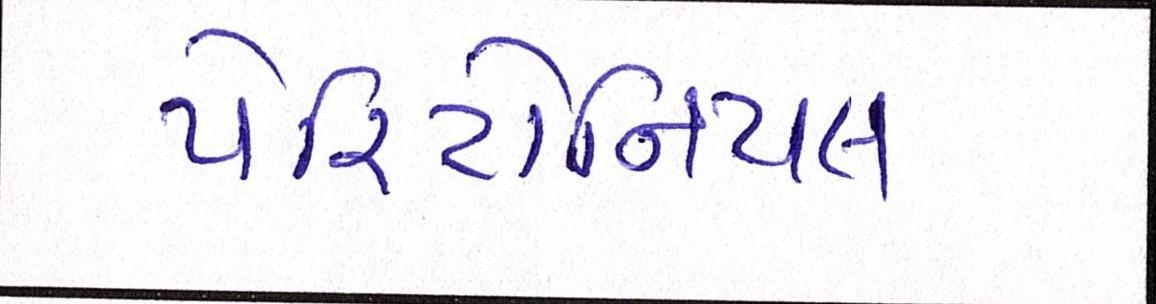 પેરિટોનિયલ